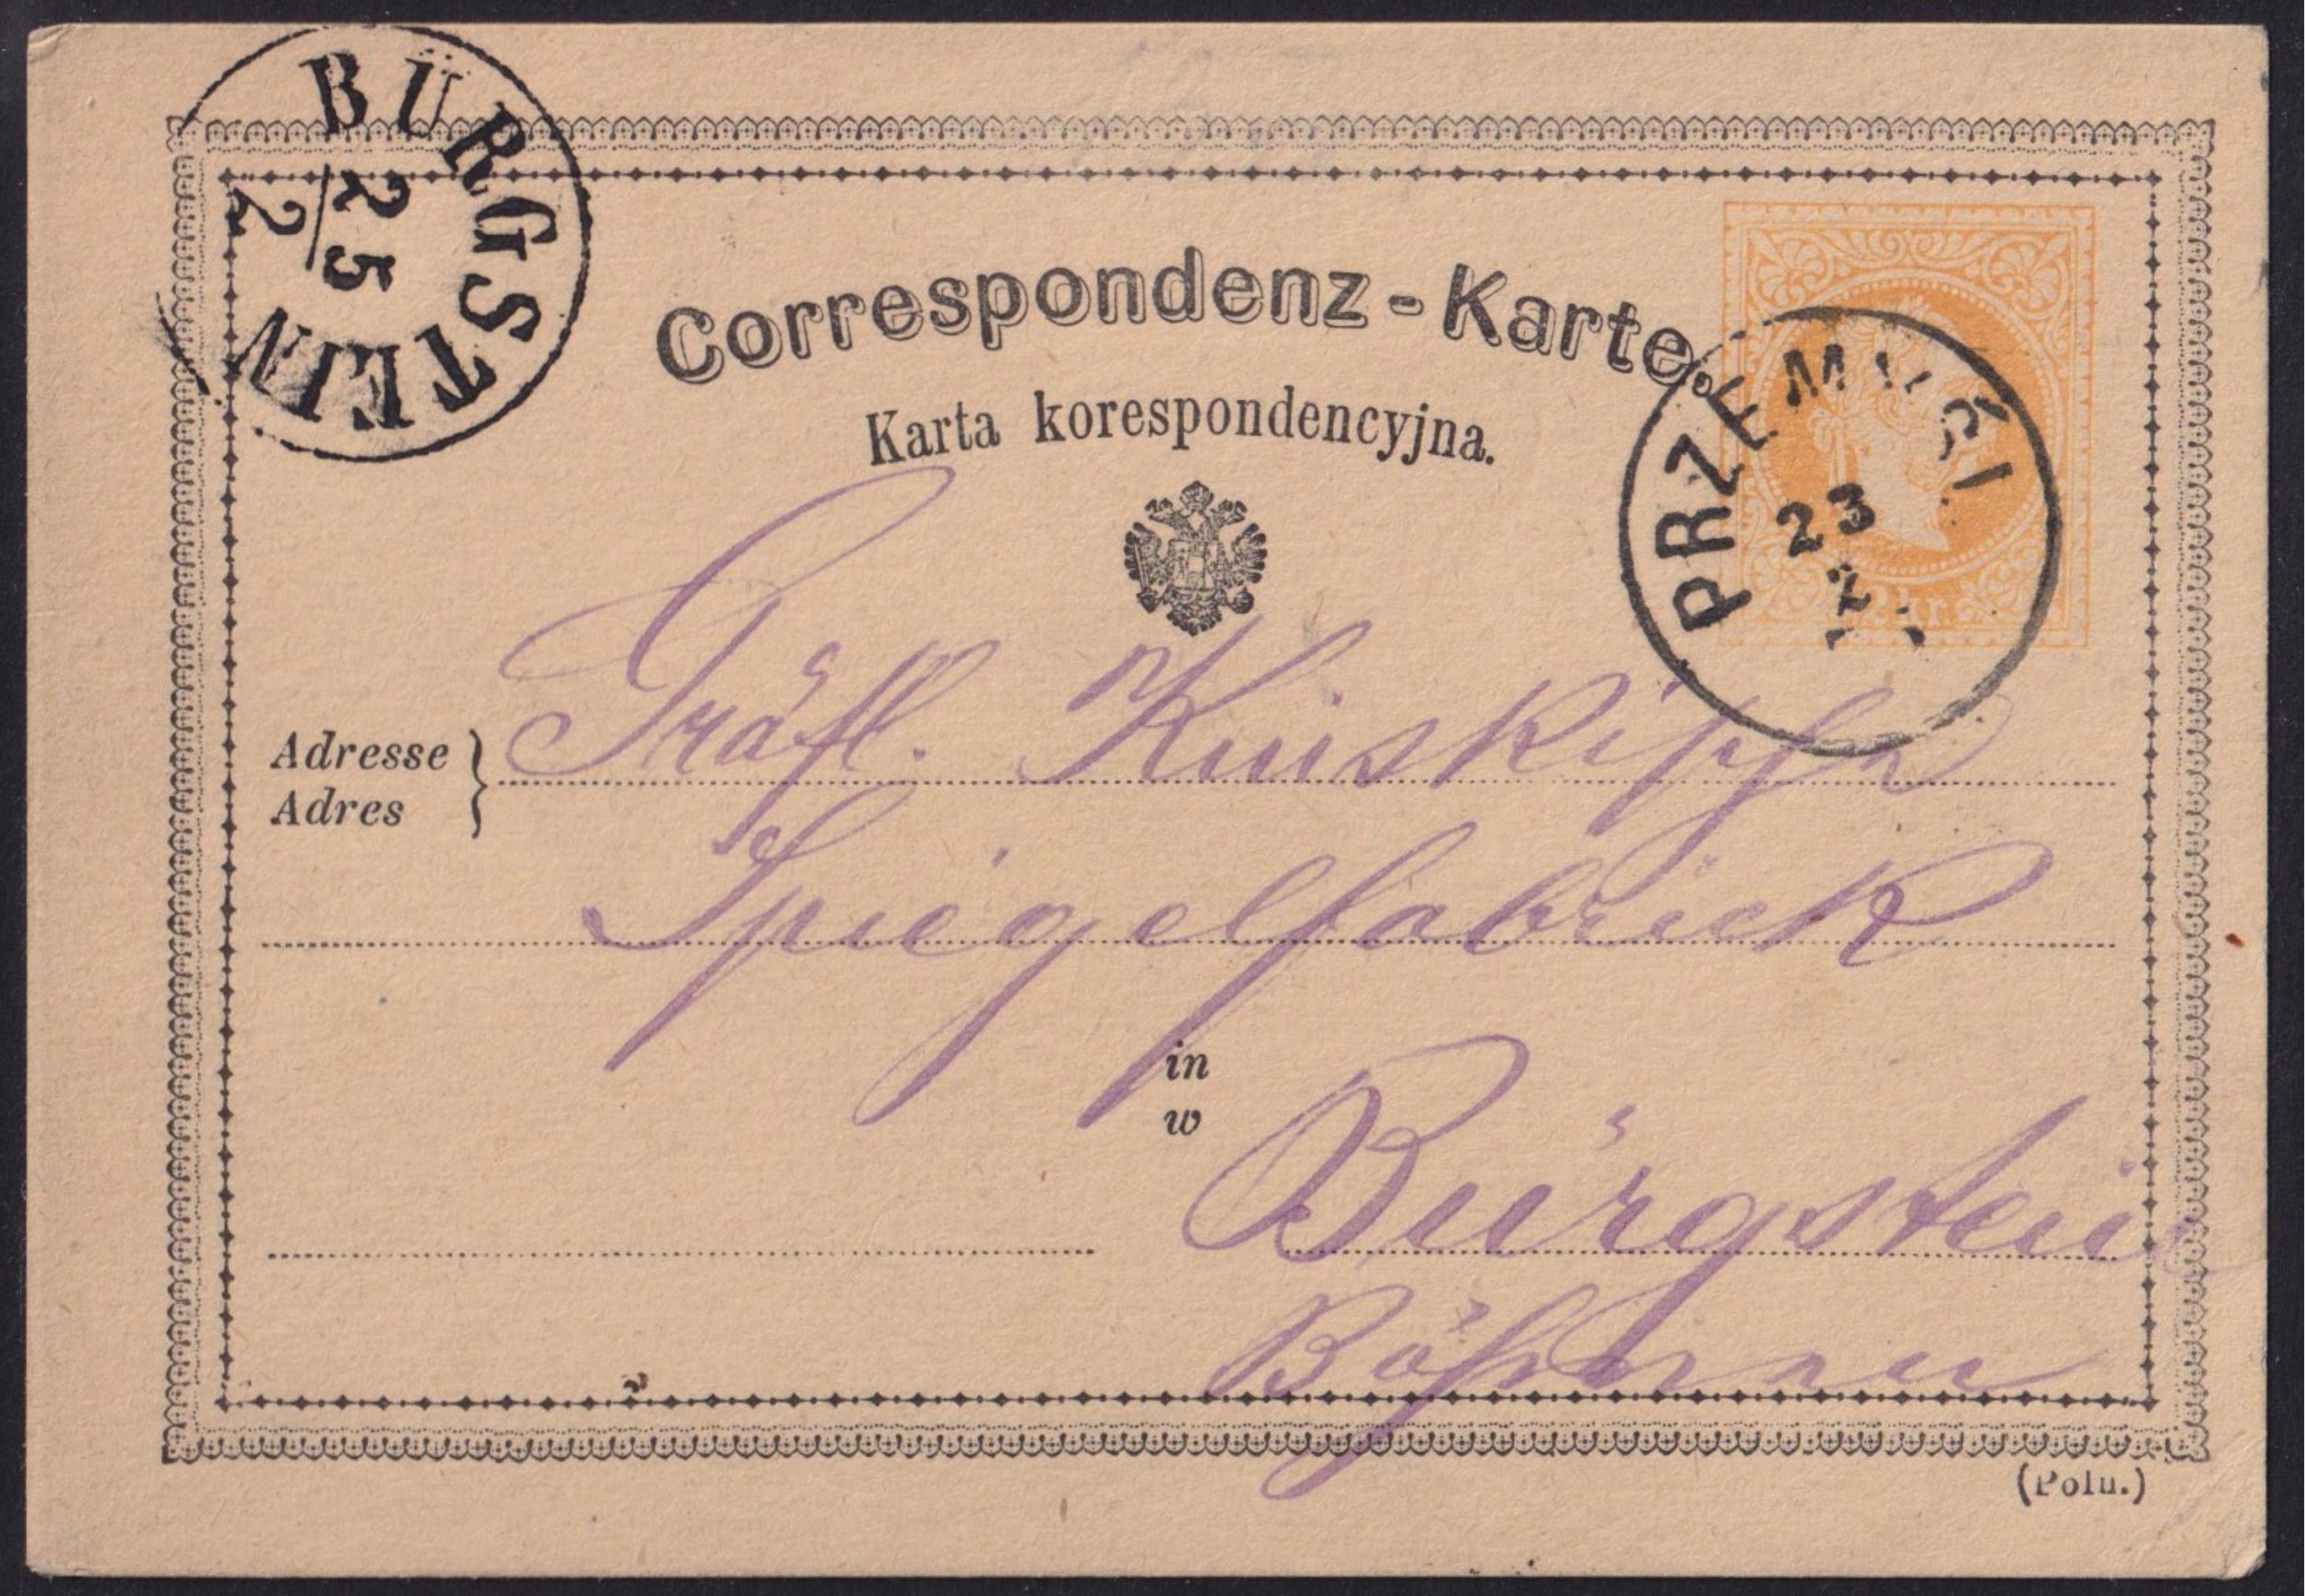 BÜRGSTEIN
25/2
Correspondenz-Karte.
Karta korespondencyjna.
PRZEMYŚL
23
2
2 kr.
Adresse
Adres
Gräfl. Kinskische
Spiegelfabrick
in
w
Bürgstein
Böhmen
(Poln.)